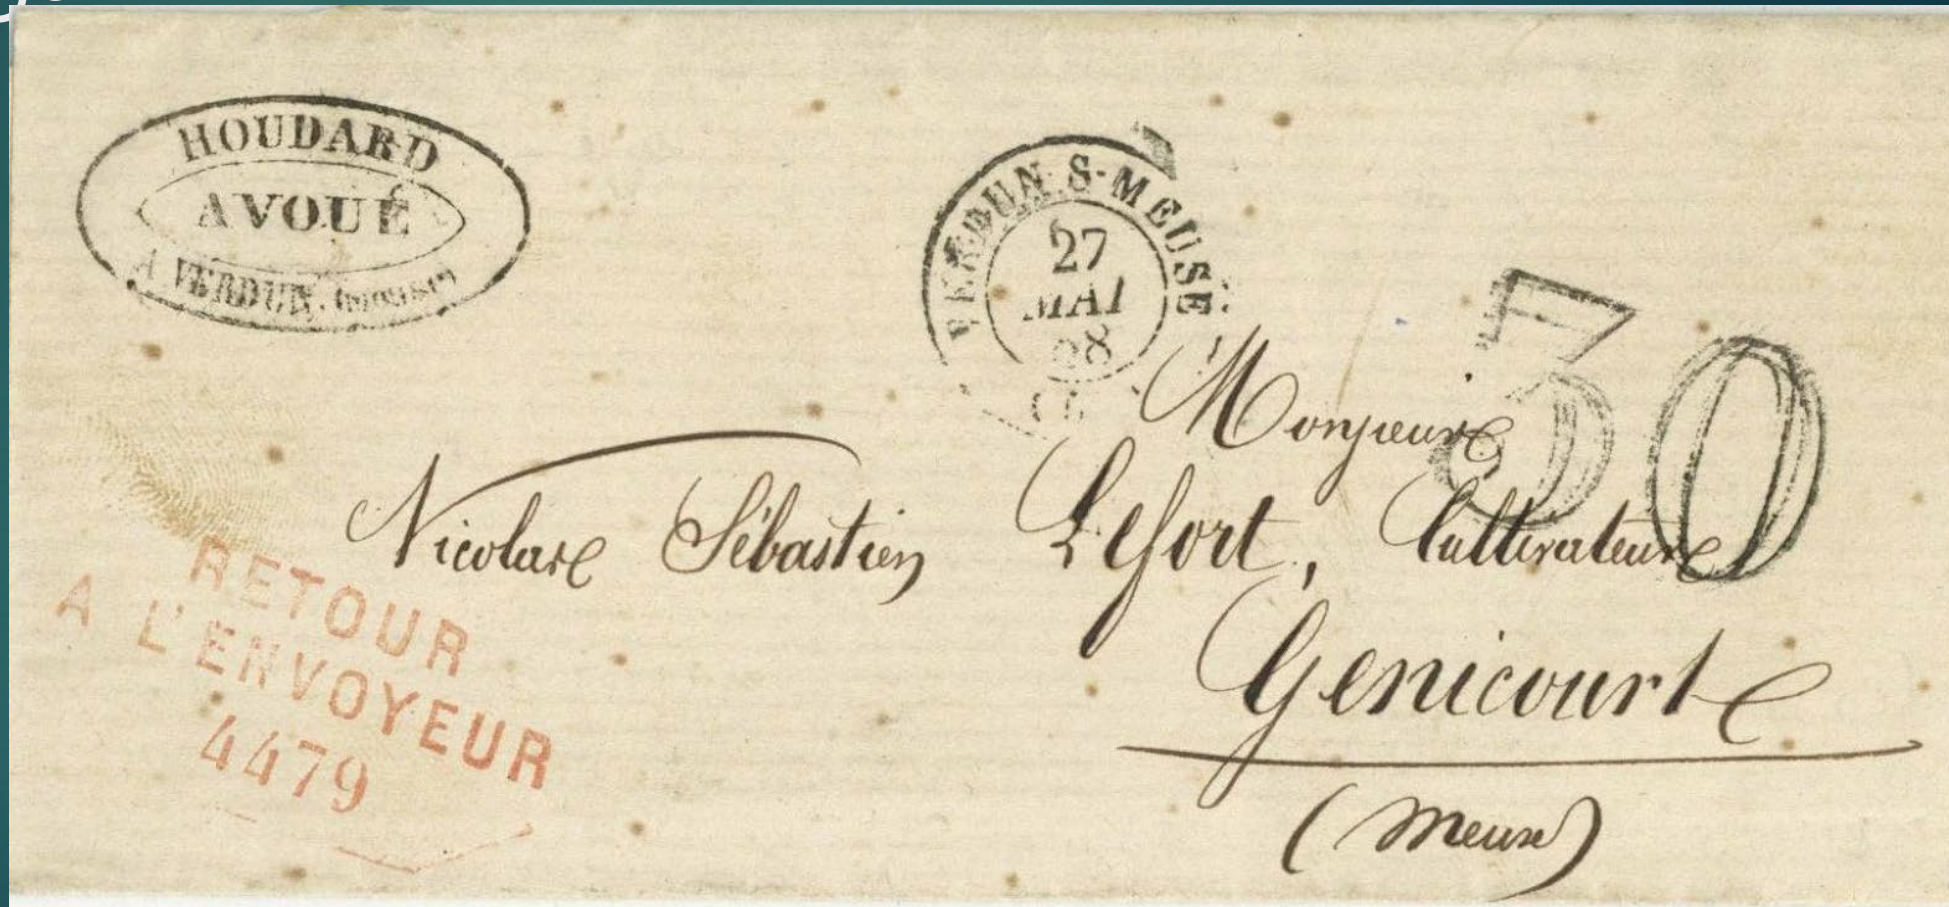 HOUDARD
AVOUÉ
A VERDUN. (MEUSE)
VERDUN-S-MEUSE
27
MAI
68
30
Monsieur
Nicolas Sébastien Lefort, cultivateur
Génicourt
(Meuse)
RETOUR
A L'ENVOYEUR
4479